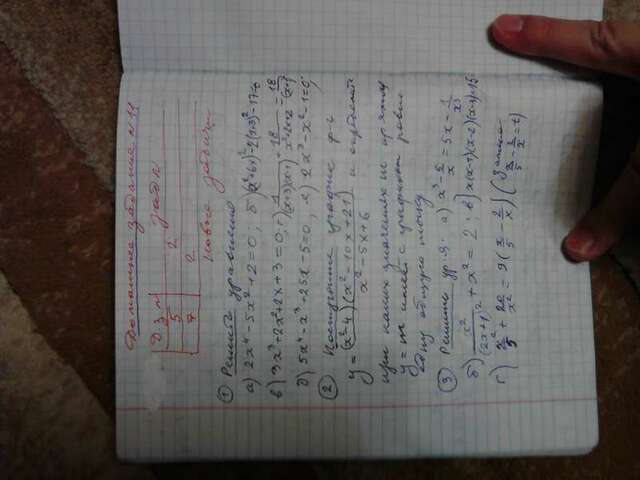 Домашнее задание №11
Д З №
5 2 зада
7 2
Новые задачи
① Решить уравнения
а) 2x⁴ - 5x² + 2 = 0; б) (x²+6x)² - 2(x+3)² - 17 = 0
в) 9x³ + 2x² + 2x + 3 = 0; г) + 18/(x²+2x+2) = 18/(x+1)²
д) 5x⁴ - x³ + 25x - 5 = 0; е) 2x³ - x² - 1 = 0;
② Постройте график ф-и
y = (x²-4)(x²-10x+21)/(x²-5x+6) и определите
при каких значениях m прямая
y = m имеет с графиком ровно
одну общую точку
③ Решить ур-я: а) x³ - 2/x = 5x - 1/x³
б) x²/(2x²+1)² + x² = 2; в) x(x-1)(x-2)(x-3) = 15
г) + 20/x² = 9(x/5 - 2/x) (Замена
x/5 - 2/x = t)